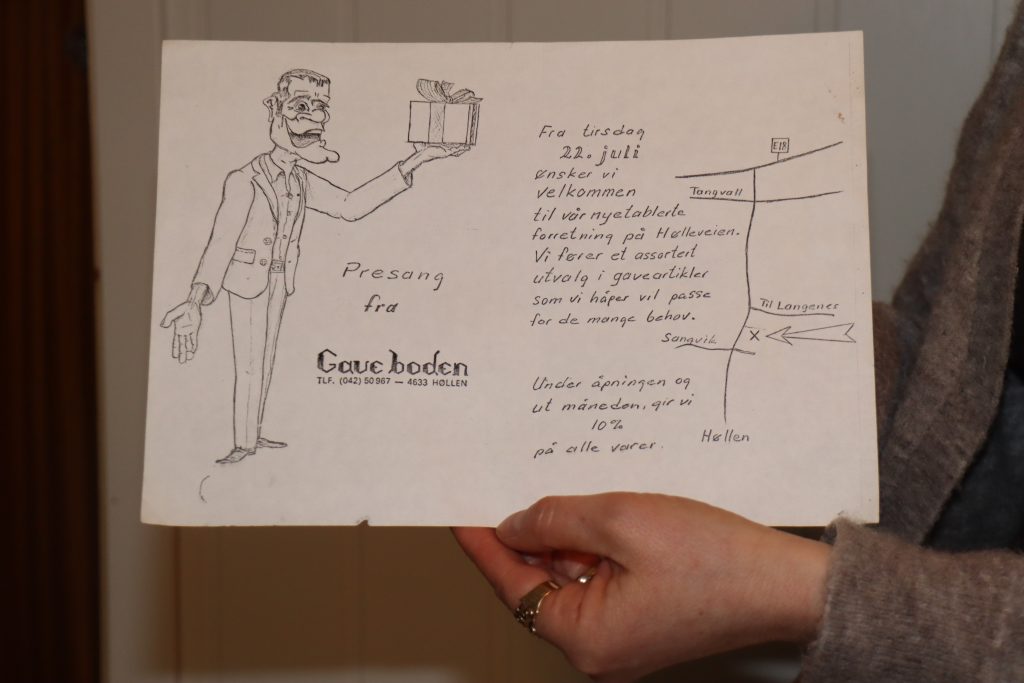 Presang
fra
Gaveboden
TLF. (042) 50967 — 4633 HØLLEN
Fra tirsdag
22. juli
ønsker vi
velkommen
til vår nyetablerte
forretning på Hølleveien.
Vi fører et assortert
utvalg i gaveartikler
som vi håper vil passe
for de mange behov.
Under åpningen og
ut måneden, gir vi
10%
på alle varer.
E18
Tangvall
Til Langenes
Sangvik
X
Høllen